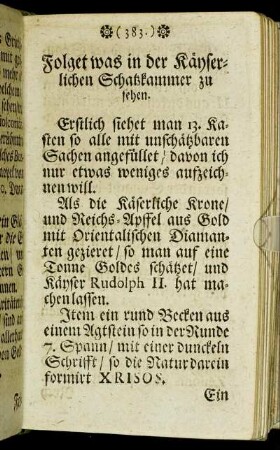 (383.)
Folget was in der Käyser-
lichen Schatzkammer zu
sehen.
Erstlich siehet man 13. Ka-
sten so alle mit unschätzbaren
Sachen angefüllet / davon ich
nur etwas weniges aufzeich-
nen will.
Als die Käserliche Krone /
und Reichs-Apffel aus Gold
mit Orientalischen Diaman-
ten gezieret / so man auf eine
Tonne Goldes schätzet / und
Käyser Rudolph II. hat ma-
chen lassen.
Item ein rund Becken aus
einem Agtstein so in der Runde
7. Spann / mit einer dunckeln
Schrifft / so die Natur darein
formirt XRISOS.
Ein